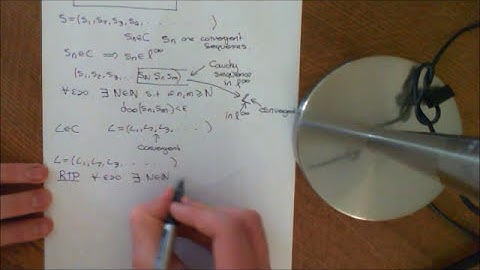 S=(S₁,S₂,S₃,S₄, . . . . )
Sₙ∈C Sₙ are convergent sequences.
Sₙ∈C ⟹ Sₙ∈ℓ^∞
(S₁,S₂,S₃,... S_N Sₙ Sₘ)
Cauchy sequence in ℓ^∞
∀ε>0 ∃N∈ℕ s.t ∀n,m≥N
d∞(Sₙ,Sₘ)<ε
L
in ℓ^∞
convergent
L∈C L=(L₁,L₂,L₃, . . . . )
convergent
L=(L₁,L₂,L₃, . . . . . )
RTP ∀ε>0 ∃N∈ℕ